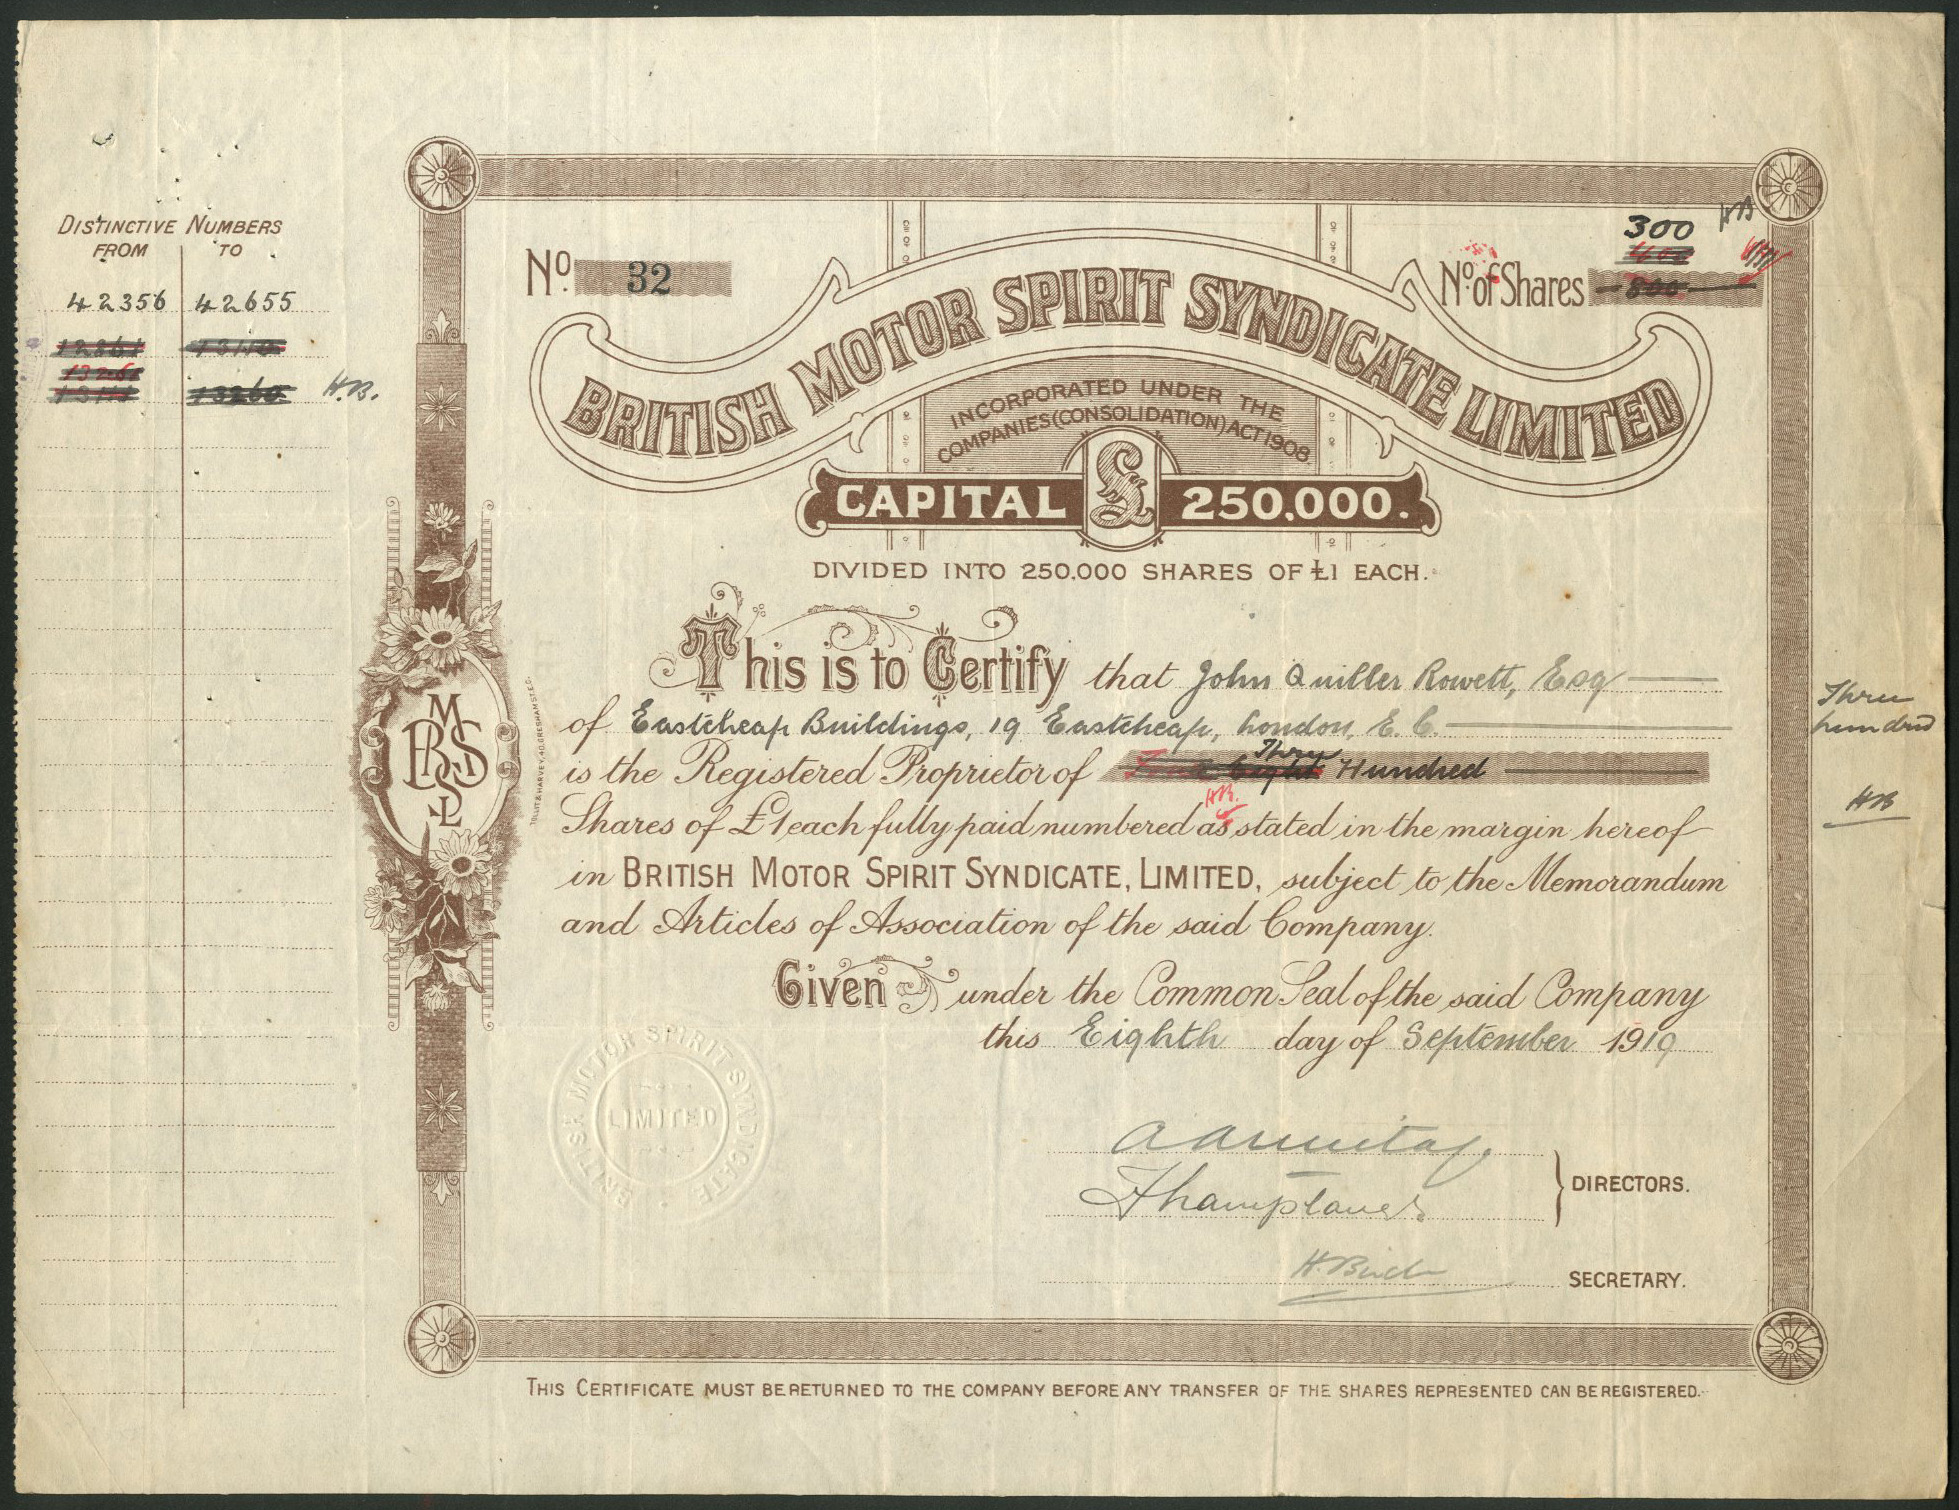 DISTINCTIVE NUMBERS
FROM TO
42356 42655
13260
H.B.
No. 32
No. of Shares 300
400
800
HB
BRITISH MOTOR SPIRIT SYNDICATE LIMITED
INCORPORATED UNDER THE
COMPANIES (CONSOLIDATION) ACT 1908.
CAPITAL £ 250,000.
DIVIDED INTO 250,000 SHARES OF £1 EACH.
This is to Certify that John Quiller Rowett, Esq
of Eastcheap Buildings, 19 Eastcheap, London, E.C.
Three
is the Registered Proprietor of Four Eight Hundred
HB.
Shares of £1 each fully paid numbered as stated in the margin hereof
in BRITISH MOTOR SPIRIT SYNDICATE, LIMITED, subject to the Memorandum
and Articles of Association of the said Company.
Given under the Common Seal of the said Company
this Eighth day of September 1919
Three
hundred
HB
BMSSL
TOLLIT & HARVEY, 40, GRESHAM ST E.C.
BRITISH MOTOR SPIRIT SYNDICATE
LIMITED
DIRECTORS.
H. Birch
SECRETARY.
THIS CERTIFICATE MUST BE RETURNED TO THE COMPANY BEFORE ANY TRANSFER OF THE SHARES REPRESENTED CAN BE REGISTERED.